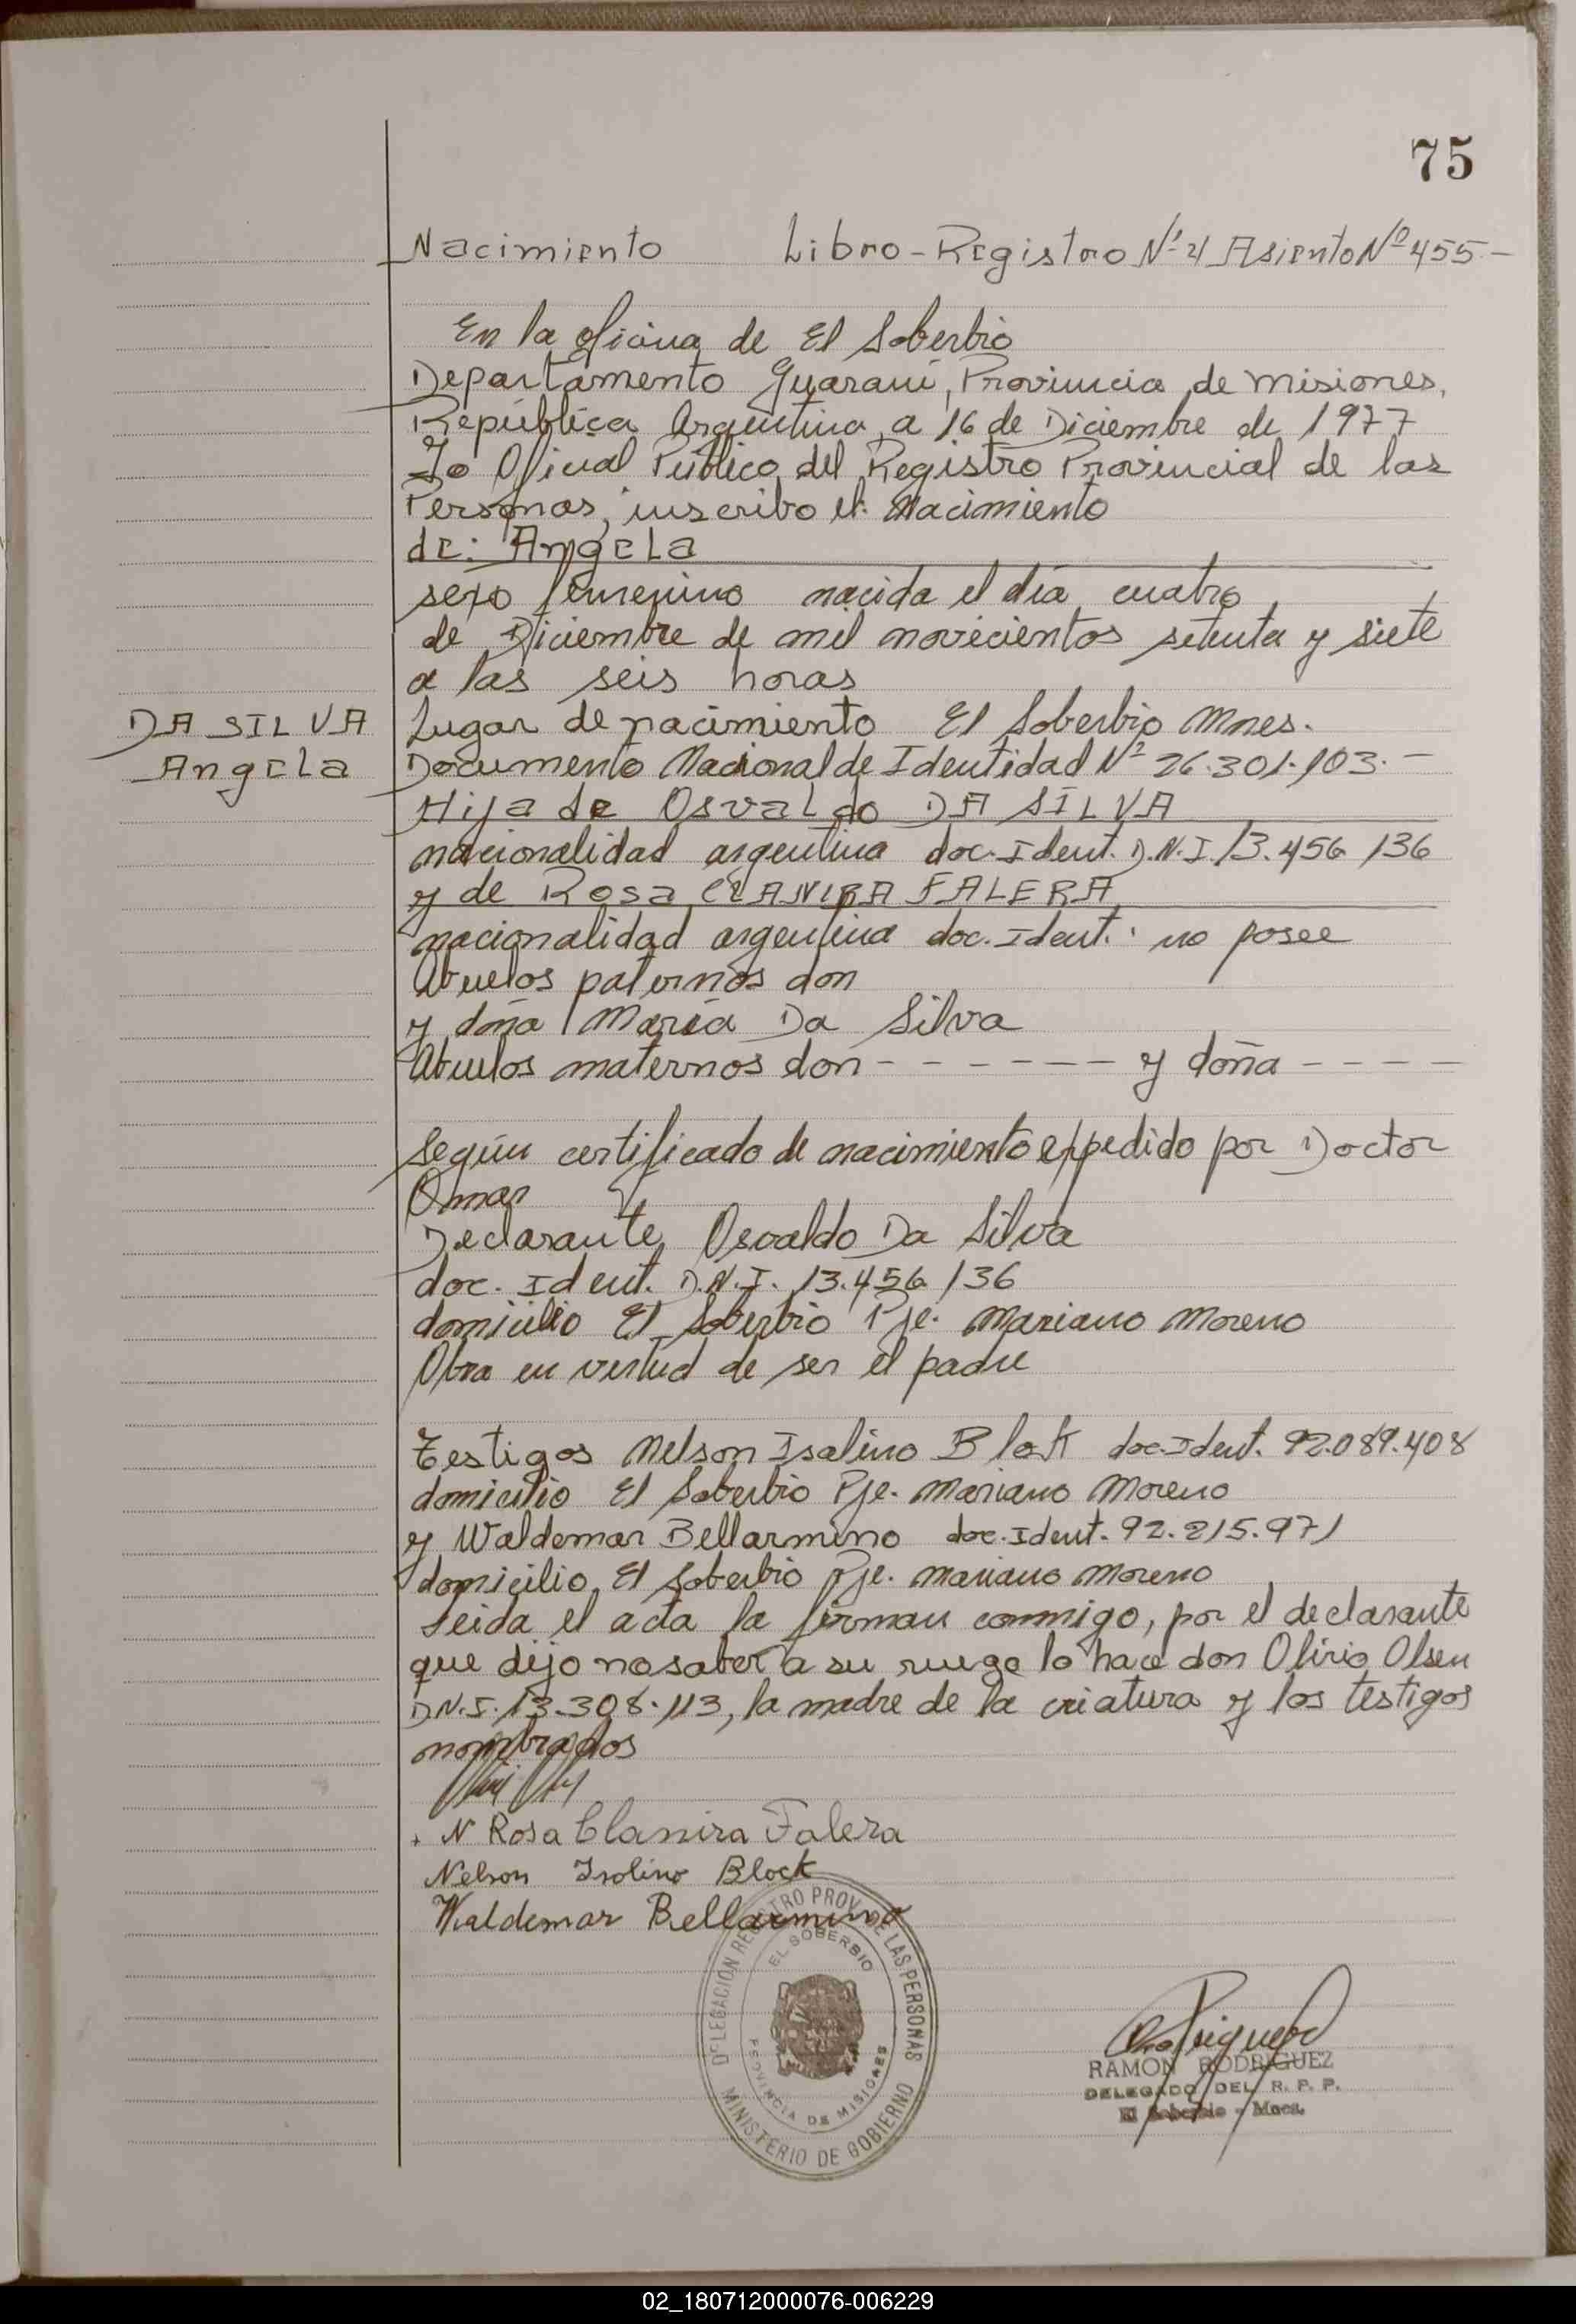 75
Nacimiento Libro-Registro Nº 4 Asiento Nº 455-
En la oficina de El Soberbio
Departamento Guaraní, Provincia de Misiones,
República Argentina, a 16 de Diciembre de 1977
Yo Oficial Público del Registro Provincial de las
Personas, inscribo el nacimiento
de: Angela
sexo femenino nacida el día cuatro
de Diciembre de mil novecientos setenta y siete
a las seis horas
DA SILVA
Angela
Lugar de nacimiento El Soberbio Mnes.
Documento Nacional de Identidad Nº 26.301.103.-
Hija de Osvaldo DA SILVA
nacionalidad argentina doc. Ident. D.N.I. 13.456.136
y de Rosa CLANIRA FALERA
nacionalidad argentina doc. Ident.: no posee
Abuelos paternos don
y doña María Da Silva
Abuelos maternos don - - - - - - y doña - - - -
Según certificado de nacimiento expedido por Doctor
Omar
Declarante Osvaldo Da Silva
doc. Ident. D.N.I. 13.456.136
domicilio El Soberbio Pje. Mariano Moreno
Obra en virtud de ser el padre
Testigos Nelson Isalino Blok doc. Ident. 92.089.408
domicilio El Soberbio Pje. Mariano Moreno
y Waldemar Bellarmino doc. Ident. 92.215.971
domicilio El Soberbio Pje. Mariano Moreno
Leida el acta la firman conmigo, por el declarante
que dijo no saber a su ruego lo hace don Olirio Olsen
D.N.I. 13.308.113, la madre de la criatura y los testigos
nombrados
N Rosa Clanira Falera
Nelson Isolino Block
Waldemar Bellarmino
DELEGACIÓN REGISTRO PROV. DE LAS PERSONAS
EL SOBERBIO
PROVINCIA DE MISIONES
MINISTERIO DE GOBIERNO
RAMON RODRIGUEZ
DELEGADO DEL R. P. P.
El Soberbio - Mnes.
02_180712000076-006229